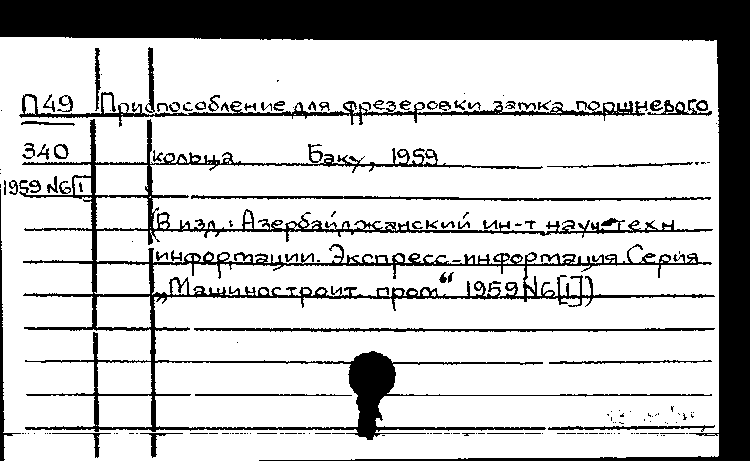 П49 Приспособление для фрезеровки замка поршневого
340 кольца. Баку, 1959.
1959 №6[1]
(В изд.: Азербайджанский ин-т науч-техн
информации. Экспресс-информация. Серия
„Машиностроит. пром.“ 1959 №6[1])